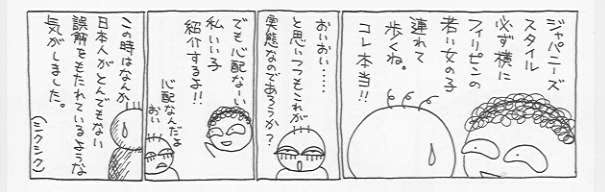 ジャパニーズ
スタイル
必ず横に
フィリピンの
若い女の子
連れて
歩くね。
コレ本当!!
おいおい……
と思いつつもこれが
実態なのであろうか?
でも心配なーい
私いい子
紹介するよ!!
心配なんだよ
おい
この時はなんか、
日本人がとんでもない
誤解をもたれているような
気がしました。
(シクシク)